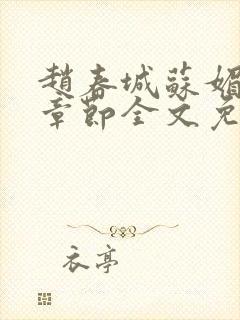 趙春城蘇媚
章節全文免
衣亭